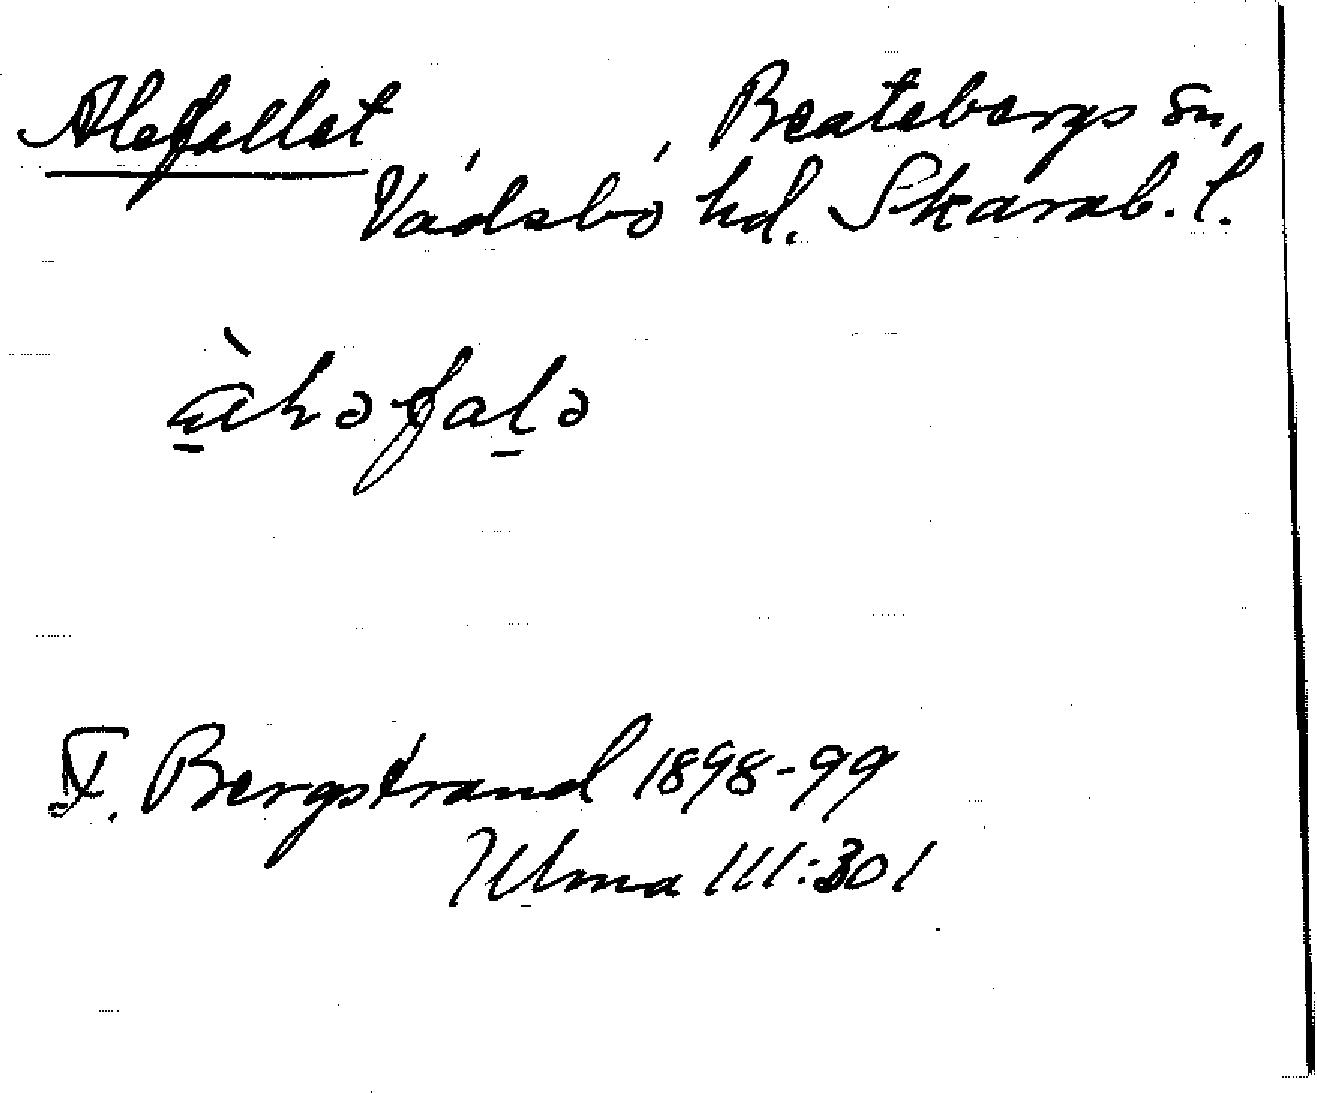 Alefallet, Beatebergs sn,
Vadsbo hd. Skarab. l.
F. Bergstrand 1898-99
Ulma 111:301